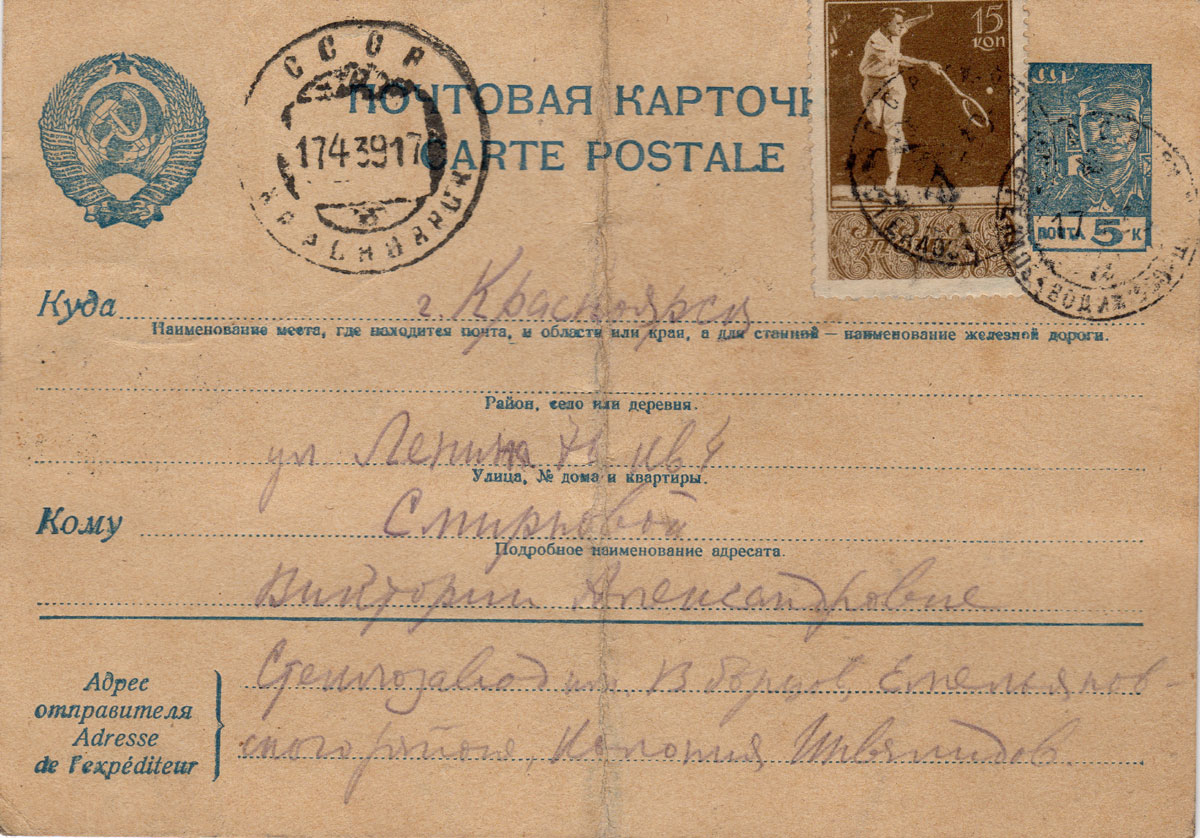 СССР
1743917
КРАСНОЯРСК
ПОЧТОВАЯ КАРТОЧ
CARTE POSTALE
15
КОП
ПОЧТА 5 К
Куда г. Красноярск
Наименование места, где находится почта, и области или края, а для станций — наименование железной дороги.
Район, село или деревня.
ул Ленина 76 кв 4
Улица, № дома и квартиры.
Кому Смирновой
Подробное наименование адресата.
Виктории Александровне
Адрес
отправителя
Adresse
de l'expéditeur
Стеклозавод им. Вборцов, Емельянов-
ского района, Колония Инвалидов.